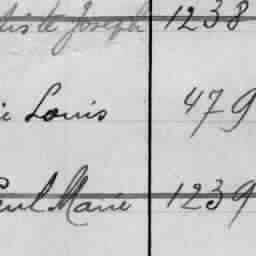 Joseph 1238
Louis 479
Paul Marie 1239